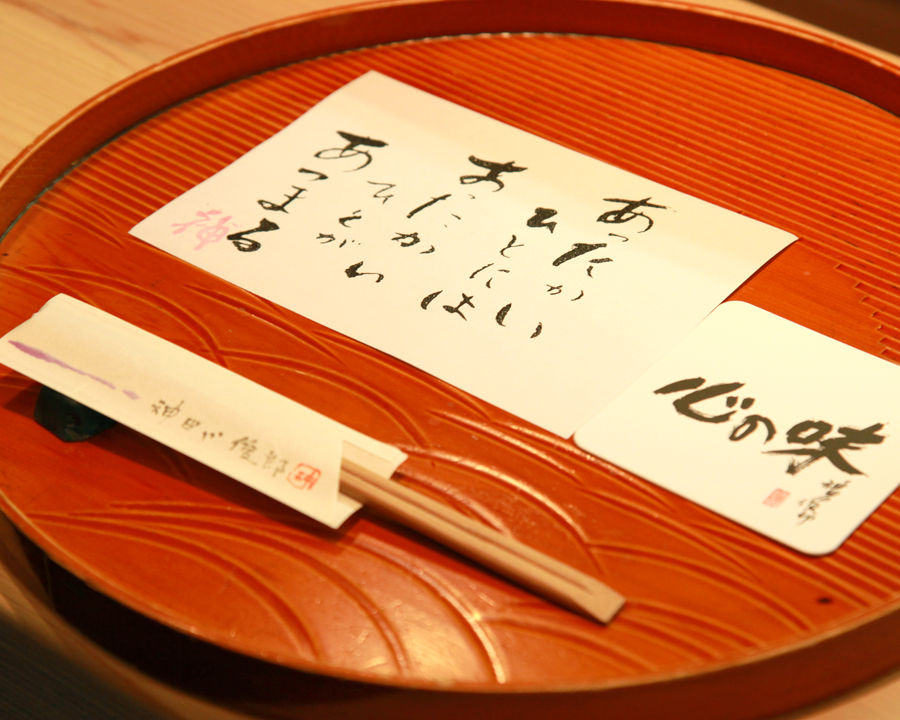 あったかい
ひとには
あったかい
ひとが
あつまる
神
心の味
神田川 俊郎